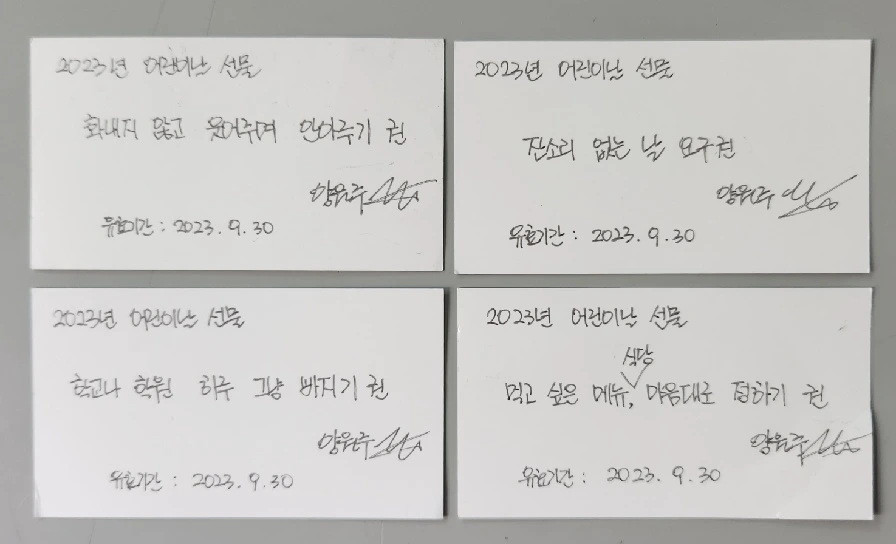 2023년 어린이날 선물
화내지 않고 웃어주며 안아주기 권
유효기간 : 2023. 9. 30
2023년 어린이날 선물
잔소리 없는 날 요구권
유효기간 : 2023. 9. 30
2023년 어린이날 선물
학교나 학원 하루 그냥 빠지기 권
유효기간 : 2023. 9. 30
2023년 어린이날 선물
식당
먹고 싶은 메뉴, 마음대로 정하기 권
유효기간 : 2023. 9. 30